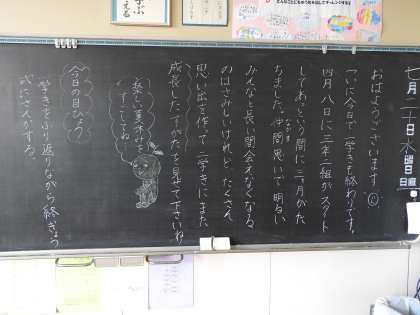 七月二十日水曜日
日直
おはようございます
ついに今日で一学きも終わりです。
四月八日に三年二組がスタート
してあっという間に三ヶ月がた
ちました。仲間思いで明るい
なかま
みんなと長い間会えなくなる
のはさみしいけれど、たくさん
思い出を作って二学きにまた
成長したすがたを見せて下さいね。
楽しい夏休みを
すごしてね
今日の目ひょう
一学きをふり返りながら終ぎょう
式にさんかする。